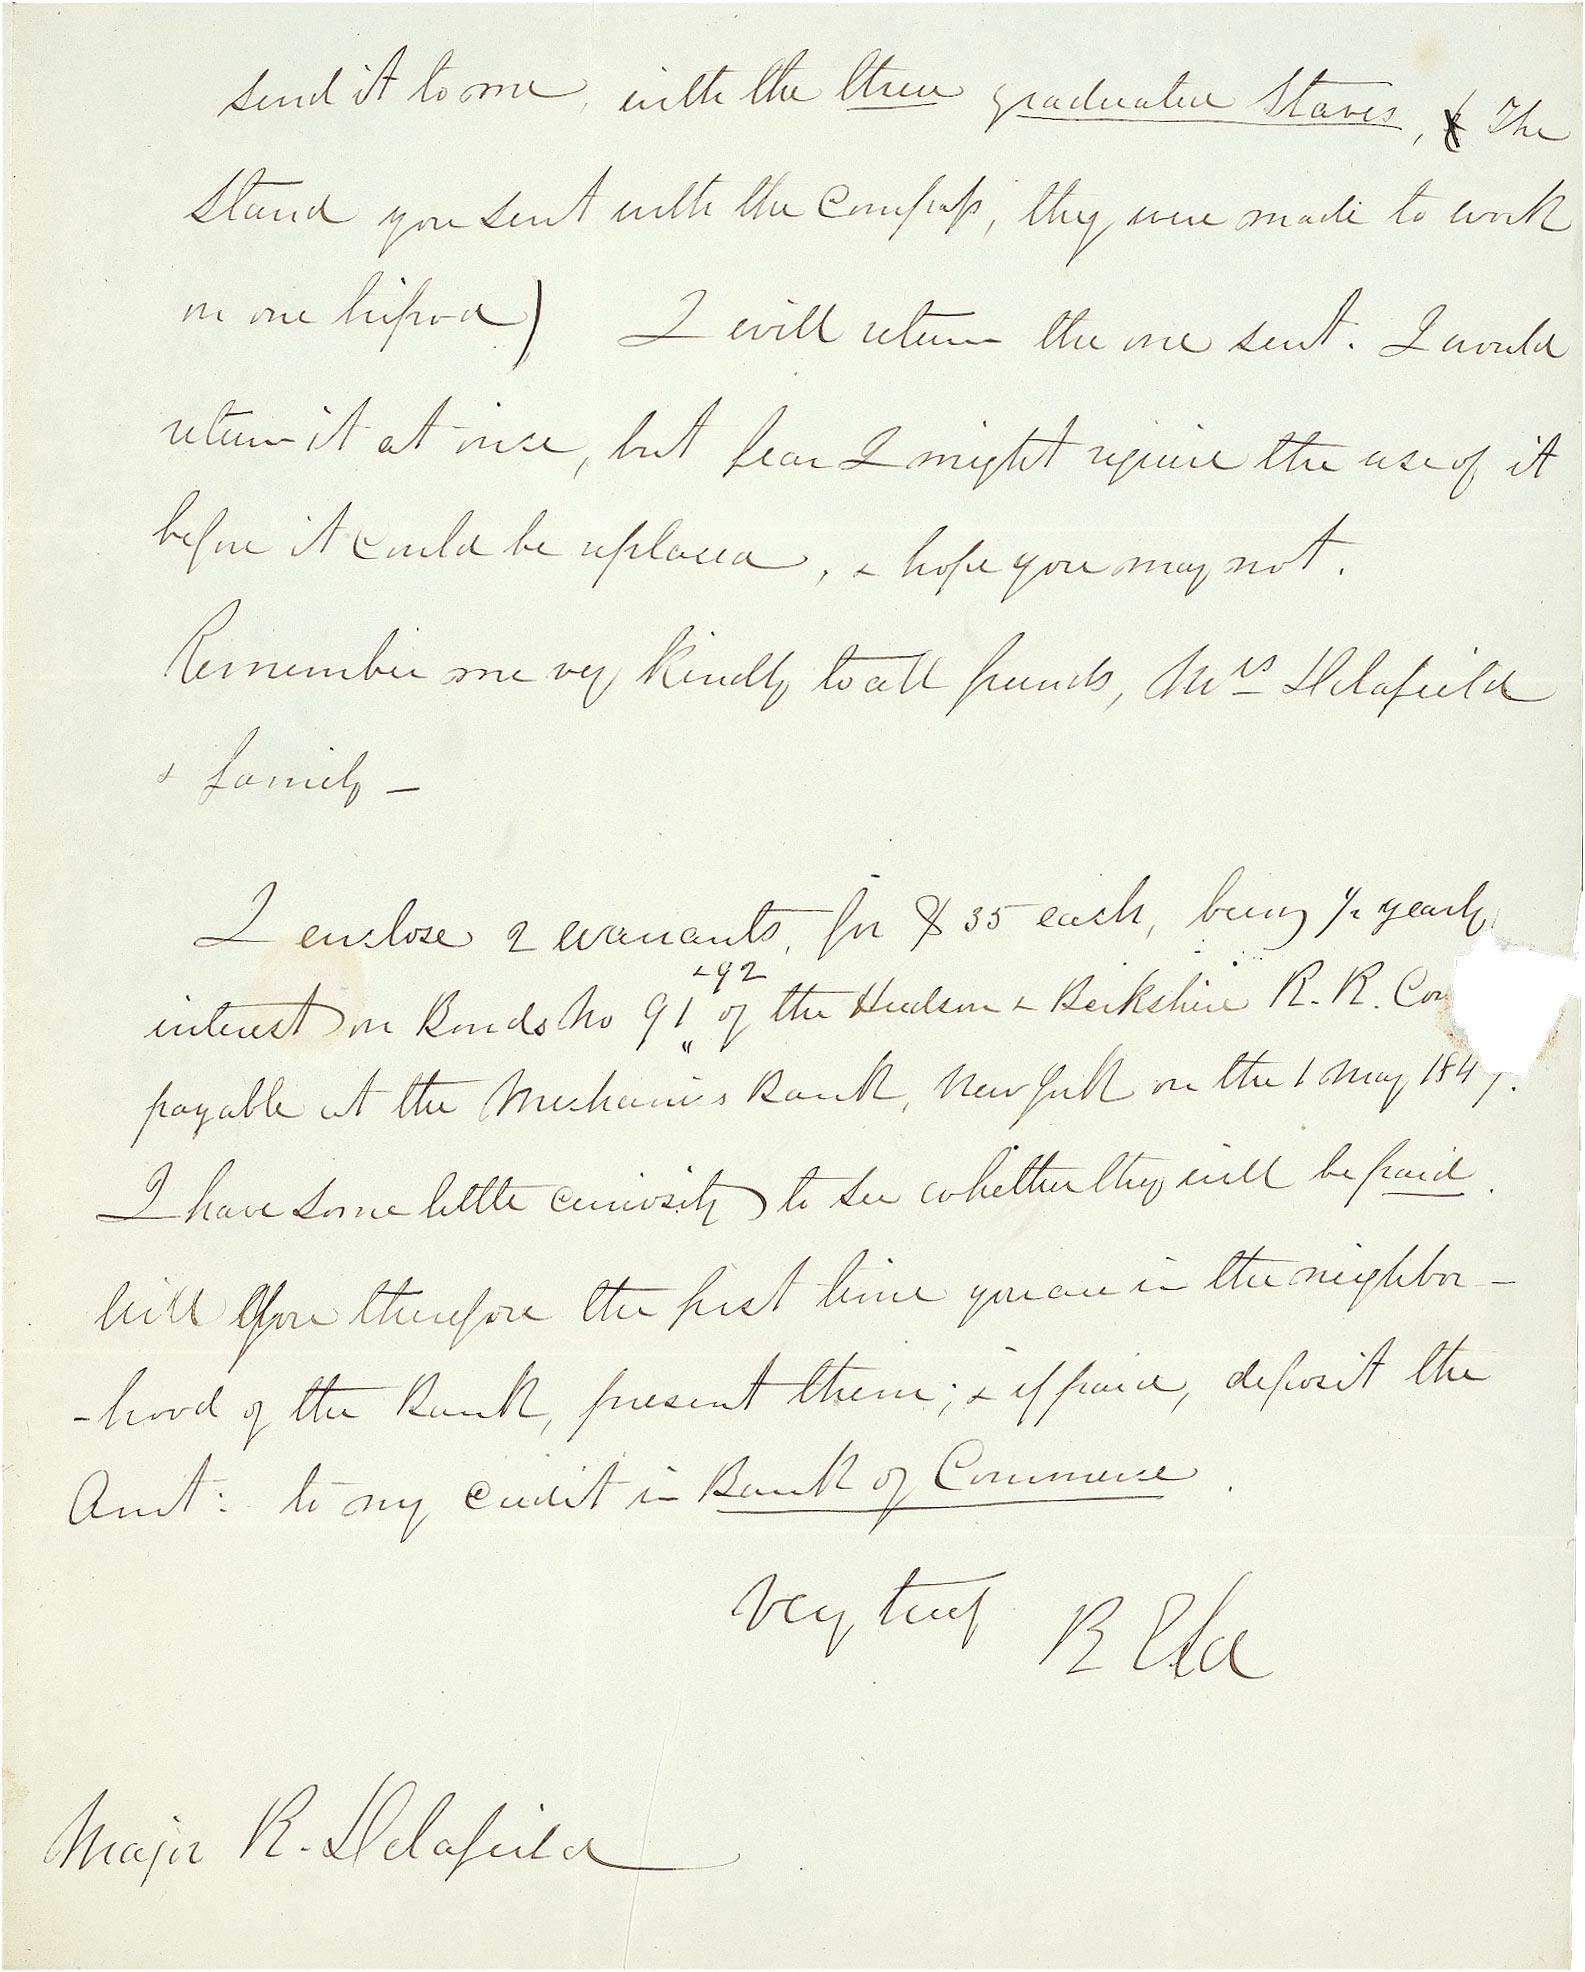 send it to me, with the three graduated Staves, & The
Stand you sent with the Compass, they were made to work
on one tripod) I will return the one sent. I would
return it at once, but fear I might require the use of it
before it could be replaced, & hope you may not.
Remember me very kindly to all friends, Mrs Delafield
& family –
I enclose 2 warrants, for $35 each, being ½ yearly
interest on Bonds No 91 & 92 of the Hudson & Berkshire R. R. Com
payable at the Mechanics Bank, New York on the 1 May 1847.
I have some little curiosity to see whether they will be paid.
Will you therefore the first time you are in the neighbor-
-hood of the Bank, present them; & if paid, deposit the
Amt: to my credit in Bank of Commerce.
Very truly R E Lee
Major R. Delafield